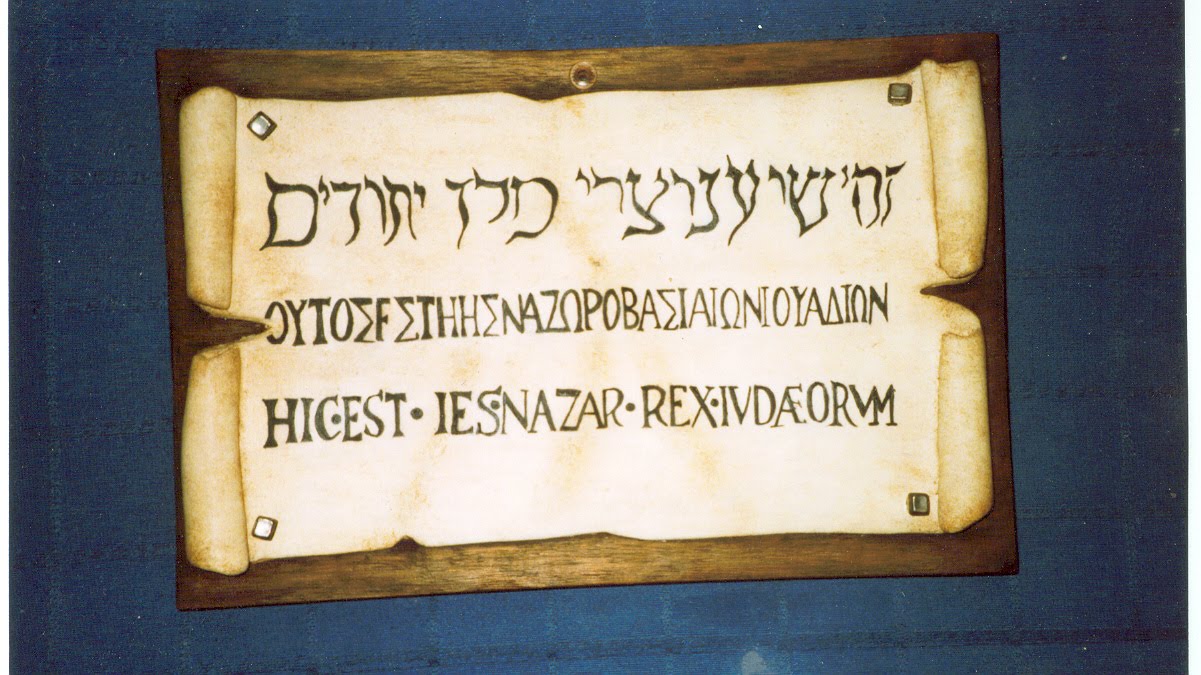 זה ישיענוצרי מלך יהודים
ΟΥΤΟΣΕΣΤΗΗΣΝΑΖΩΡΟΒΑΣΙΑΙΩΝΙΟΥΑΔΙΩΝ
HIC·EST· IES·NAZAR·REX·IVDÆORVM